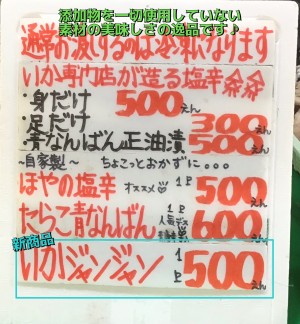 添加物を一切使用していない
素材の美味しさの逸品です♪
通常お渡しするのは冷凍になります
いか専門店が造る塩辛
・身だけ 500えん
・足だけ 300えん
・青なんばん正油漬 500えん
~自家製~ ちょこっとおかずに・・・
ほやの塩辛 オススメ♡ 1P 500えん
たらこ青なんばん 1P 人気です 600えん
新商品
いかジャンジャン 1P 500えん